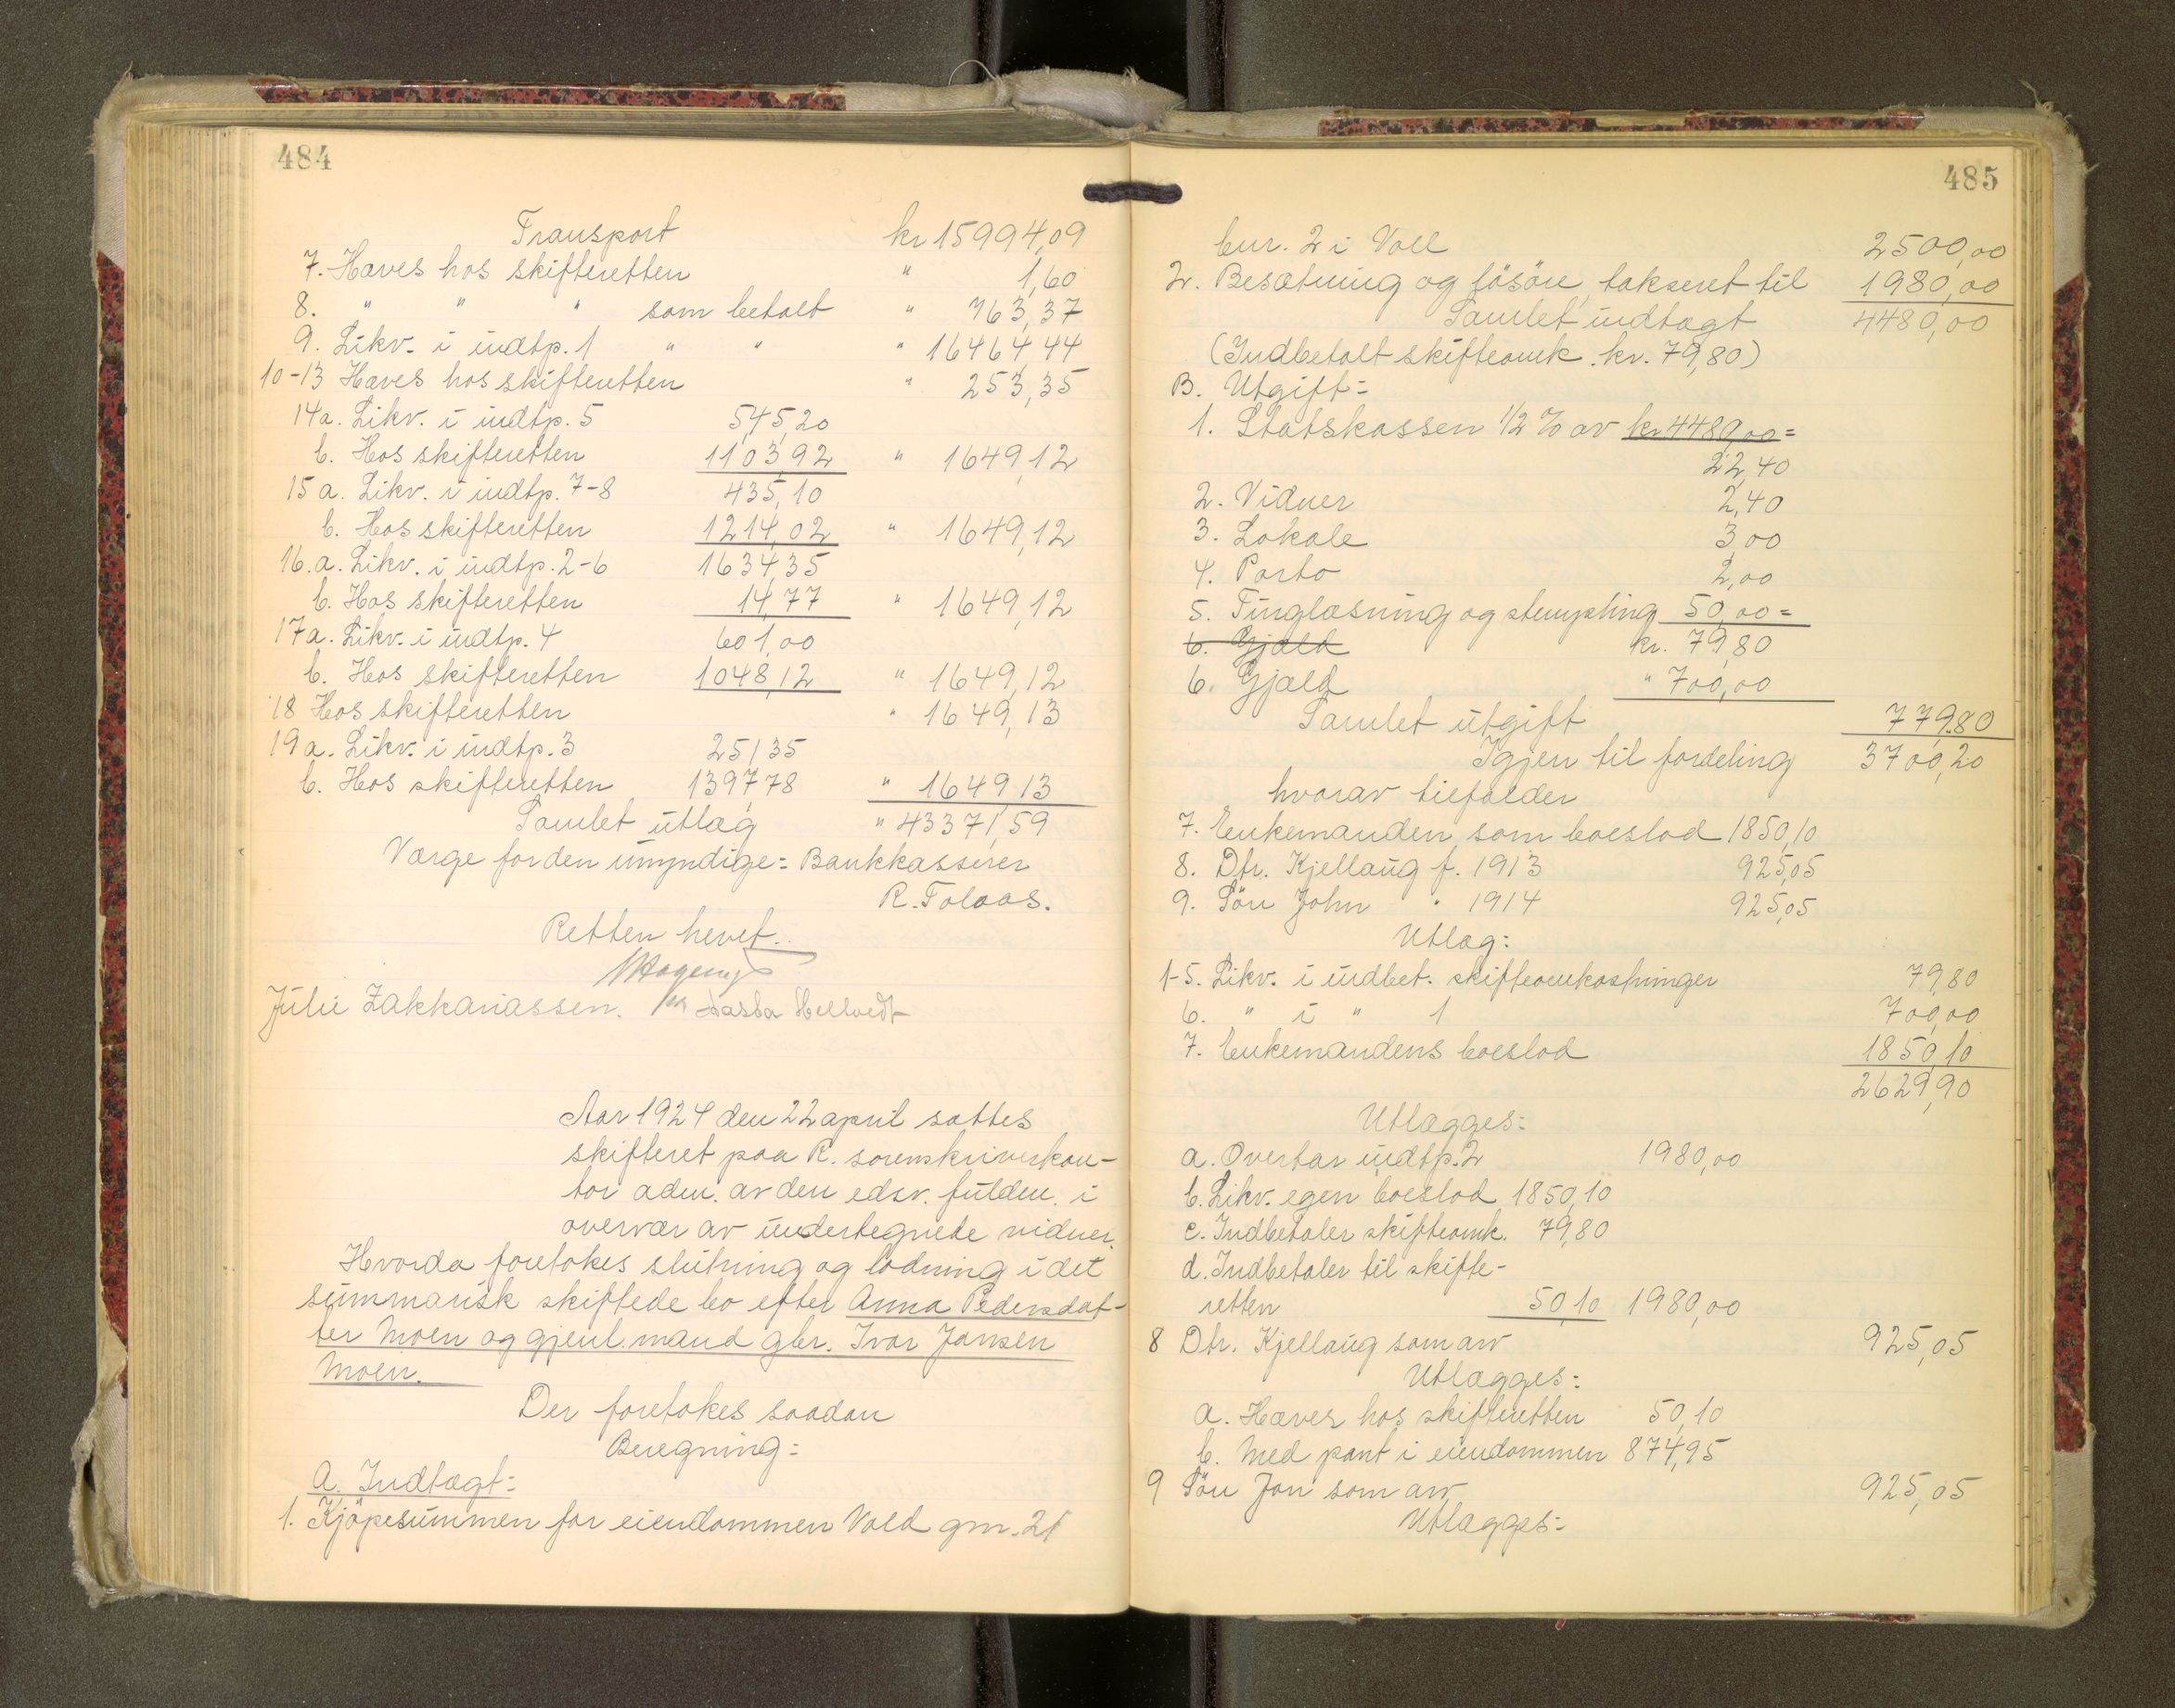 484
Transport kr 15994,09
7. Hæves hos skifteretten " 1,60
8. " " " som betalt " 763,37
9. Likv. i indtp. 1 " " " 16464,44
10-13 Hæves hos skifteretten " 253,35
14a. Likv. i indtp. 5 545,20
b. Hos skifteretten 1103,92 " 1649,12
15 a. Likv. i indtp. 7-8 435,10
b. Hos skifteretten 1214,02 " 1649,12
16.a. Likv. i indtp. 2-6 1634,35
b. Hos skifteretten 14,77 " 1649,12
17a. Likv. i indtp. 4 601,00
b. Hos skifteretten 1048,12 " 1649,12
18 Hos skifteretten " 1649,13
19a. Likv. i indtp. 3 251,35
b. Hos skifteretten 1397,78 " 1649,13
Samlet utlæg " 43371,59
Værge for den umyndige: Bankkasserer
R. Tolaas.
Retten hevet.
Julie Zakkariassen. Hellvedt
Aar 1924 den 22 april sattes
skifteret paa R. sorenskriverkon-
tor adm. av den edsv. fuldm. i
overvær av undertegnede vidner.
Hvorda foretokes slutning og lodning i det
summarisk skiftede bo efter Anna Pedersdat-
ter Moen og gjenl. mand gbr. Ivar Jansen
Moen.
Der foretokes saadan
Beregning:
A. Indtægt:
1. Kjöpesummen for eiendommen Vold gm. 21
485
bnr. 2 i Voll 2500,00
2. Besætning og lösöre, takseret til 1980,00
Samlet indtægt 4480,00
(Indbetalt skifteomk. kr. 79,80)
B. Utgift:
1. Statskassen 1/2 % av kr 4480,00 =
22,40
2. Vidner 2,40
3. Lokale 3,00
4. Porto 2,00
5. Tinglæsning og stempling 50,00 =
6. Gjæld kr. 79,80
6. Gjæld " 700,00
Samlet utgift 779,80
Igjen til fordeling 3700,20
hvorav tilfalder
7. Enkemanden som boeslod 1850,10
8. Dtr. Kjellaug f. 1913 925,05
9. Sön John " 1914 925,05
Utlæg:
1-5. Likv. i indbet. skifteomkostninger 79,80
6. " i " 1 700,00
7. Enkemandens boeslod 1850,10
2629,90
Utlægges:
a. Overtar indtp. 2 1980,00
b. Likv. egen boeslod 1850,10
c. Indbetaler skifteomk. 79,80
d. Indbetaler til skifte-
retten 50,10 1980,00
8 Dtr. Kjellaug som arv 925,05
Utlægges:
a. Hæver hos skifteretten 50,10
b. Med pant i eiendommen 874,95
9 Sön Jon som arv 925,05
Utlægges: